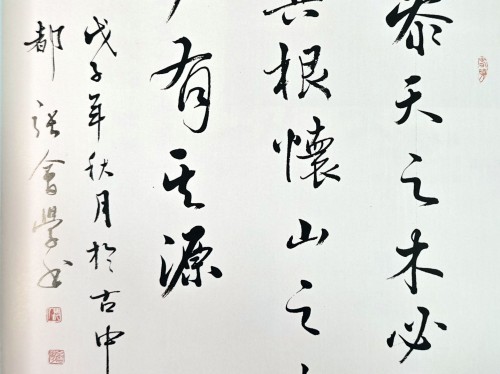 參天之木必
其根懷山之
有其源
戊子年秋月於古中
都 張會學書